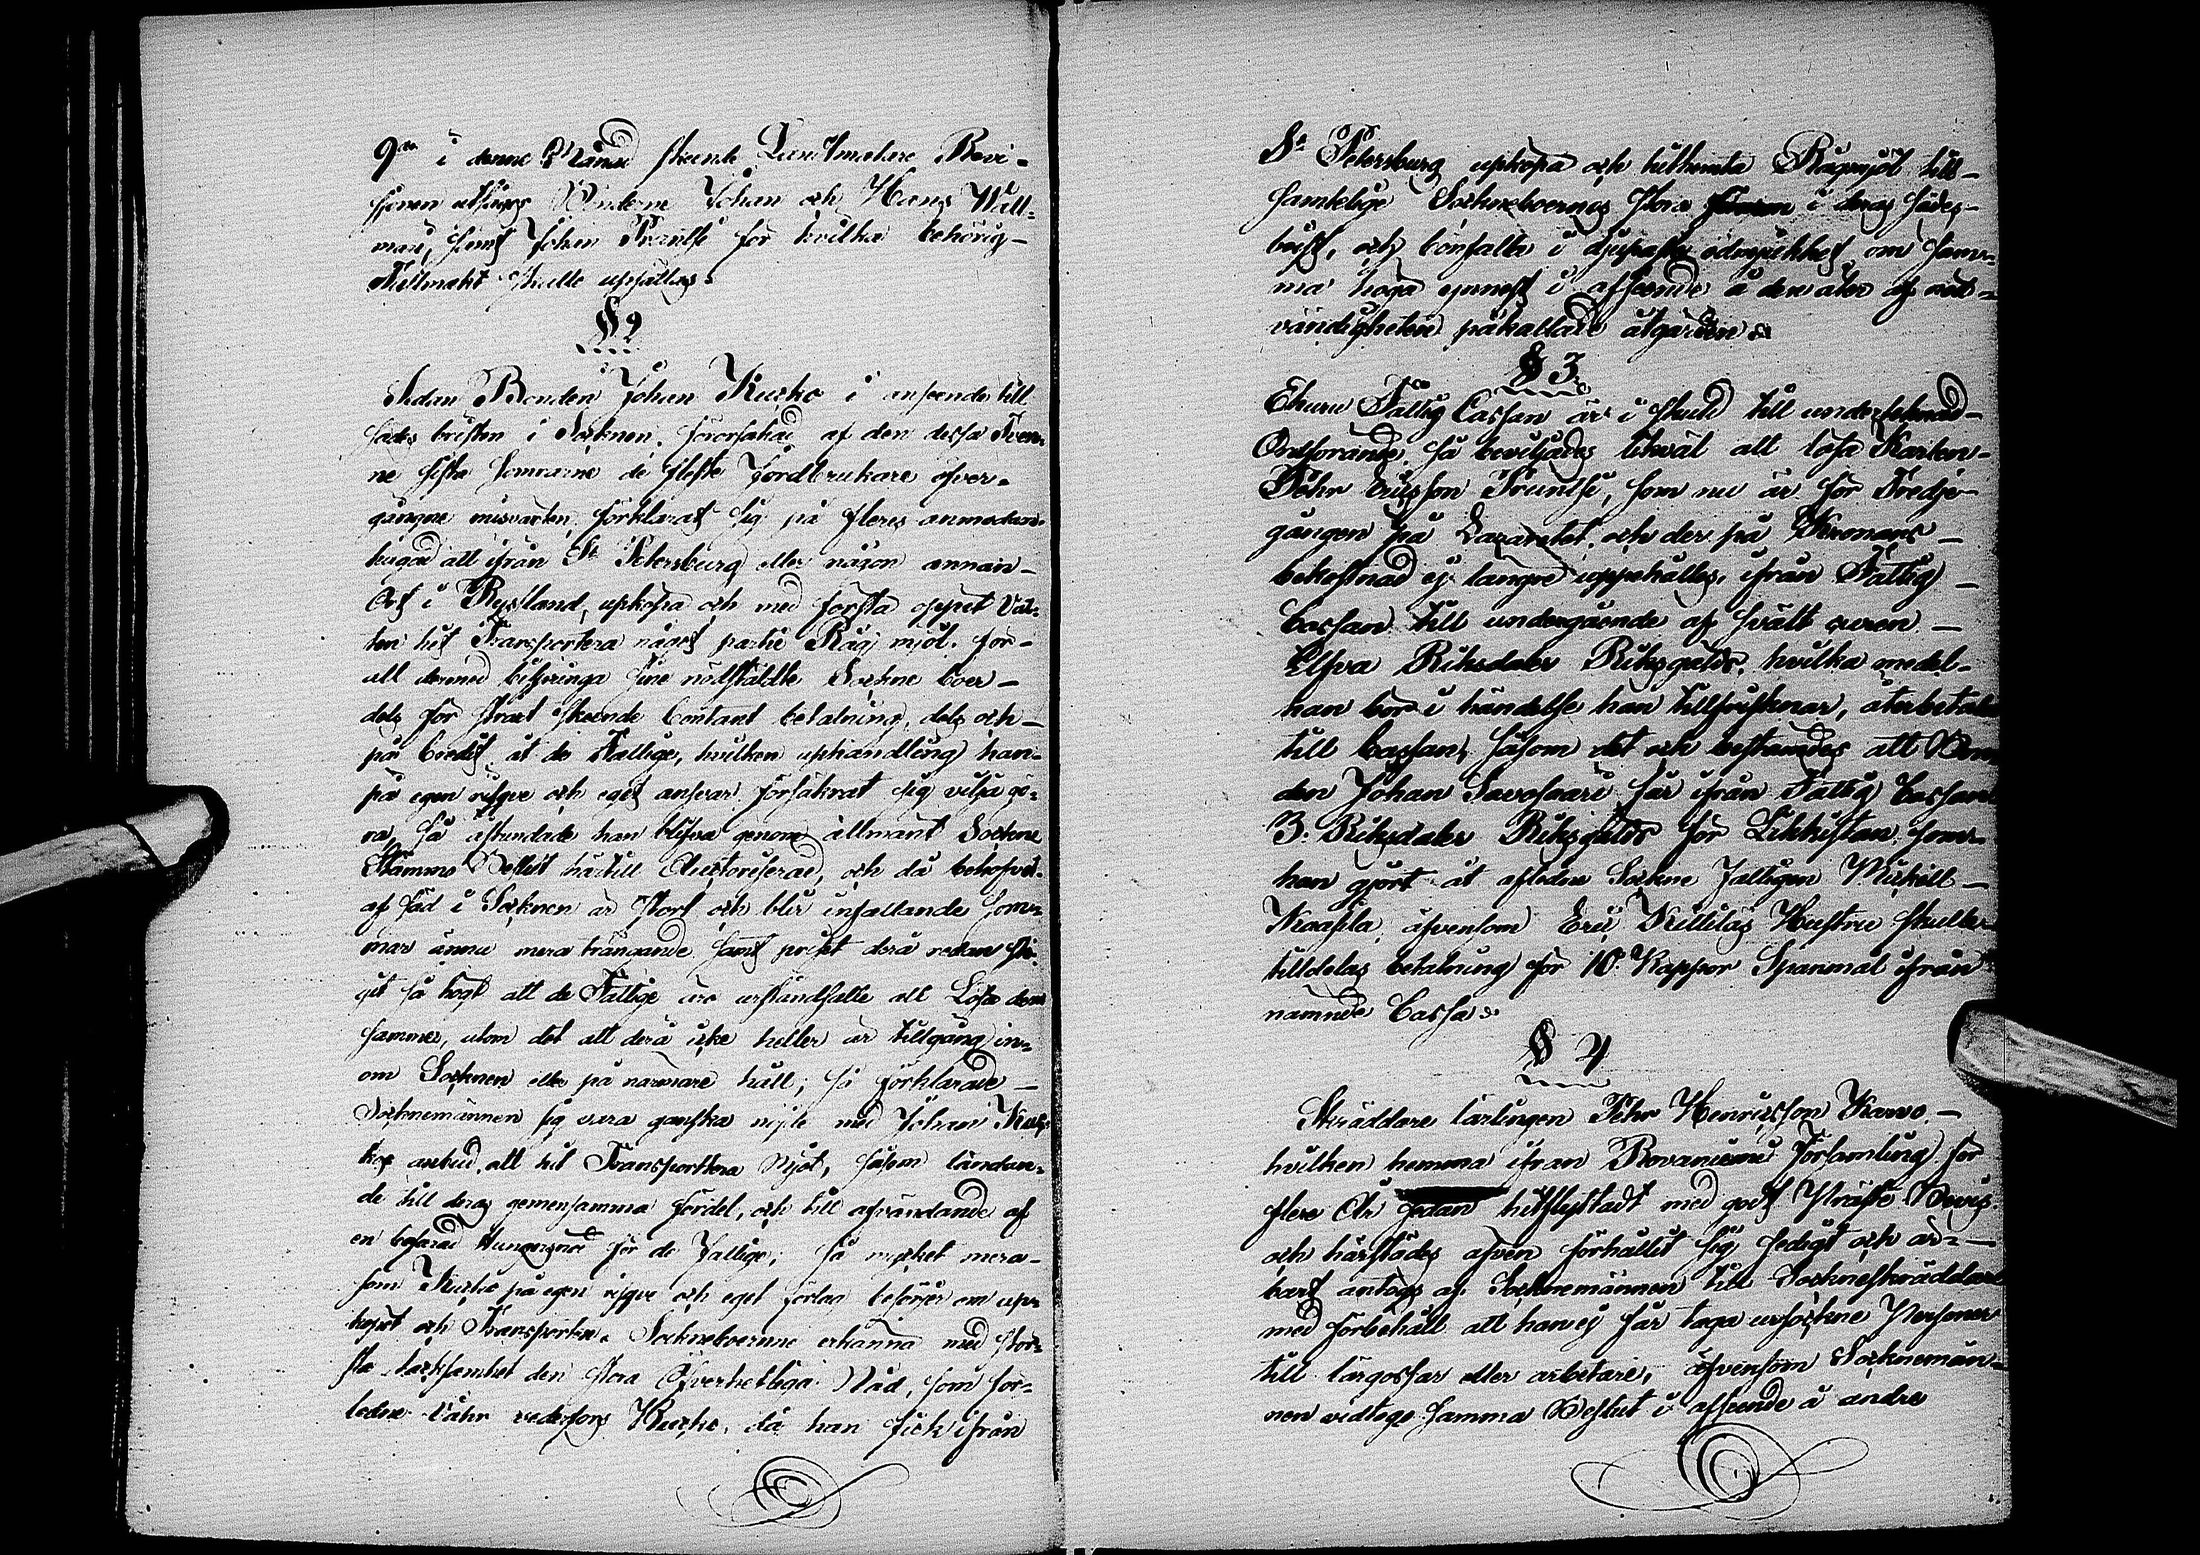 9de i denne Månad skeende Landtmätare Revi-
sionen utsågs Bönderne Johan och Hans Will-
mari, samt Johan Frantsi för hvilka behörig
Fullmakt skulle upsättas.
§ 2
Sedan Bonden Johan Kurko i anseende till
sädes bristen i Socknen, förorsakad af den dessa Tven-
ne sista Somrarne de flesta Jordbrukare öfver-
gångne misväxten, förklarat sig på fleres anmodan-
att ifrån St Petersburg eller någon annan
Ort i Ryssland, upköpa och med första öppet Vat-
ten hit Transportera något partie Råg mjöl, för
att dermed bispringa sine nödstäldte Sockne boer
dels för strax skeende Contant betalning, dels och
på Credit åt de Fattige, hvilken uphandling han
på egen risque och eget ansvar försäkrat sig vilja gö-
ra, så åstundade han blifva genom allmänt Sockne
Stämmo Beslut härtill Auctoriserad, och då behofvet
af säd i Socknen är stort och blir infallande Som-
mar ännu mera trängande samt priset derå redan sti-
git så högt att de Fattige äro urståndsatte att Lösa den
samma, utom det att derå icke heller är tillgång in-
om Socknen eller på närmare håll; så förklarade
Socknemännen sig vara ganska nöjde med Johan Kur-
kos anbud, att hit Transportera Mjöl, såsom ländan-
de till deras gemensamma fördel, och till afvändande af
en befarad Hungersnöd för de Fattige; så mycket mera
som Kurko på egen risque och eget förlag besörjer om up-
köpet och Transporten. Sockneboerne erkänna med stör-
sta tacksamhet den stora Öfverhetliga Nåd, som för-
ledne Våhr vederfors Kurko, då han fick ifrån
St Petersburg upköpa och hithemta Rågmjöl till
samtelige Sockneboernes stora i deras sädes-
brist, och bönfalla i djupaste ödmjukhet om sam-
ma höga ynnest i afseende å den åter af nöd-
vändigheten påkallade åtgärden.
§ 3
Ehuru Fattig Cassan är i skuld till undertecknad
Ordförande, så beviljades likväl att lösa Karlen
Pehr Ericsson Fruntsi, som nu är för Tredje
gången på Lazarettet, och der på Kronans
bekostnad ej längre uppehålles, ifrån Fattig
Cassan till undergående af svält curen
Elfva Riksdaler Riksgälds, hvilka medel
han bör i händelse han tillfrisknar, återbetala
till Cassan, såsom det och bestämdes att Bon-
den Johan Savosaari får ifrån Fattig Cassan
3 Riksdaler Riksgälds för Likkistan, som
han gjort åt afledne Sockne Fattigen Mickell
Kaasila, äfvensom Eric Kittiläs Hustru skulle
tilldelas betalning för 10 Kappor Spanmål ifrån
nämnde Cassa.
§ 4
Skräddare lärlingen Pehr Henricsson Karvo
hvilken hemma ifrån Rovaniemi Församling för
flere År sedan hitflyttadt med godt Präste Bevis
och härstädes äfven förhållit sig sedigt och är-
bart antogs af Socknemännen till Sockneskräddare
med förbehåll att han ej får taga ursockne Personer
till lärgossar eller arbetare, äfvensom Socknemän-
nen vidtoge samma Beslut i afseende å andre